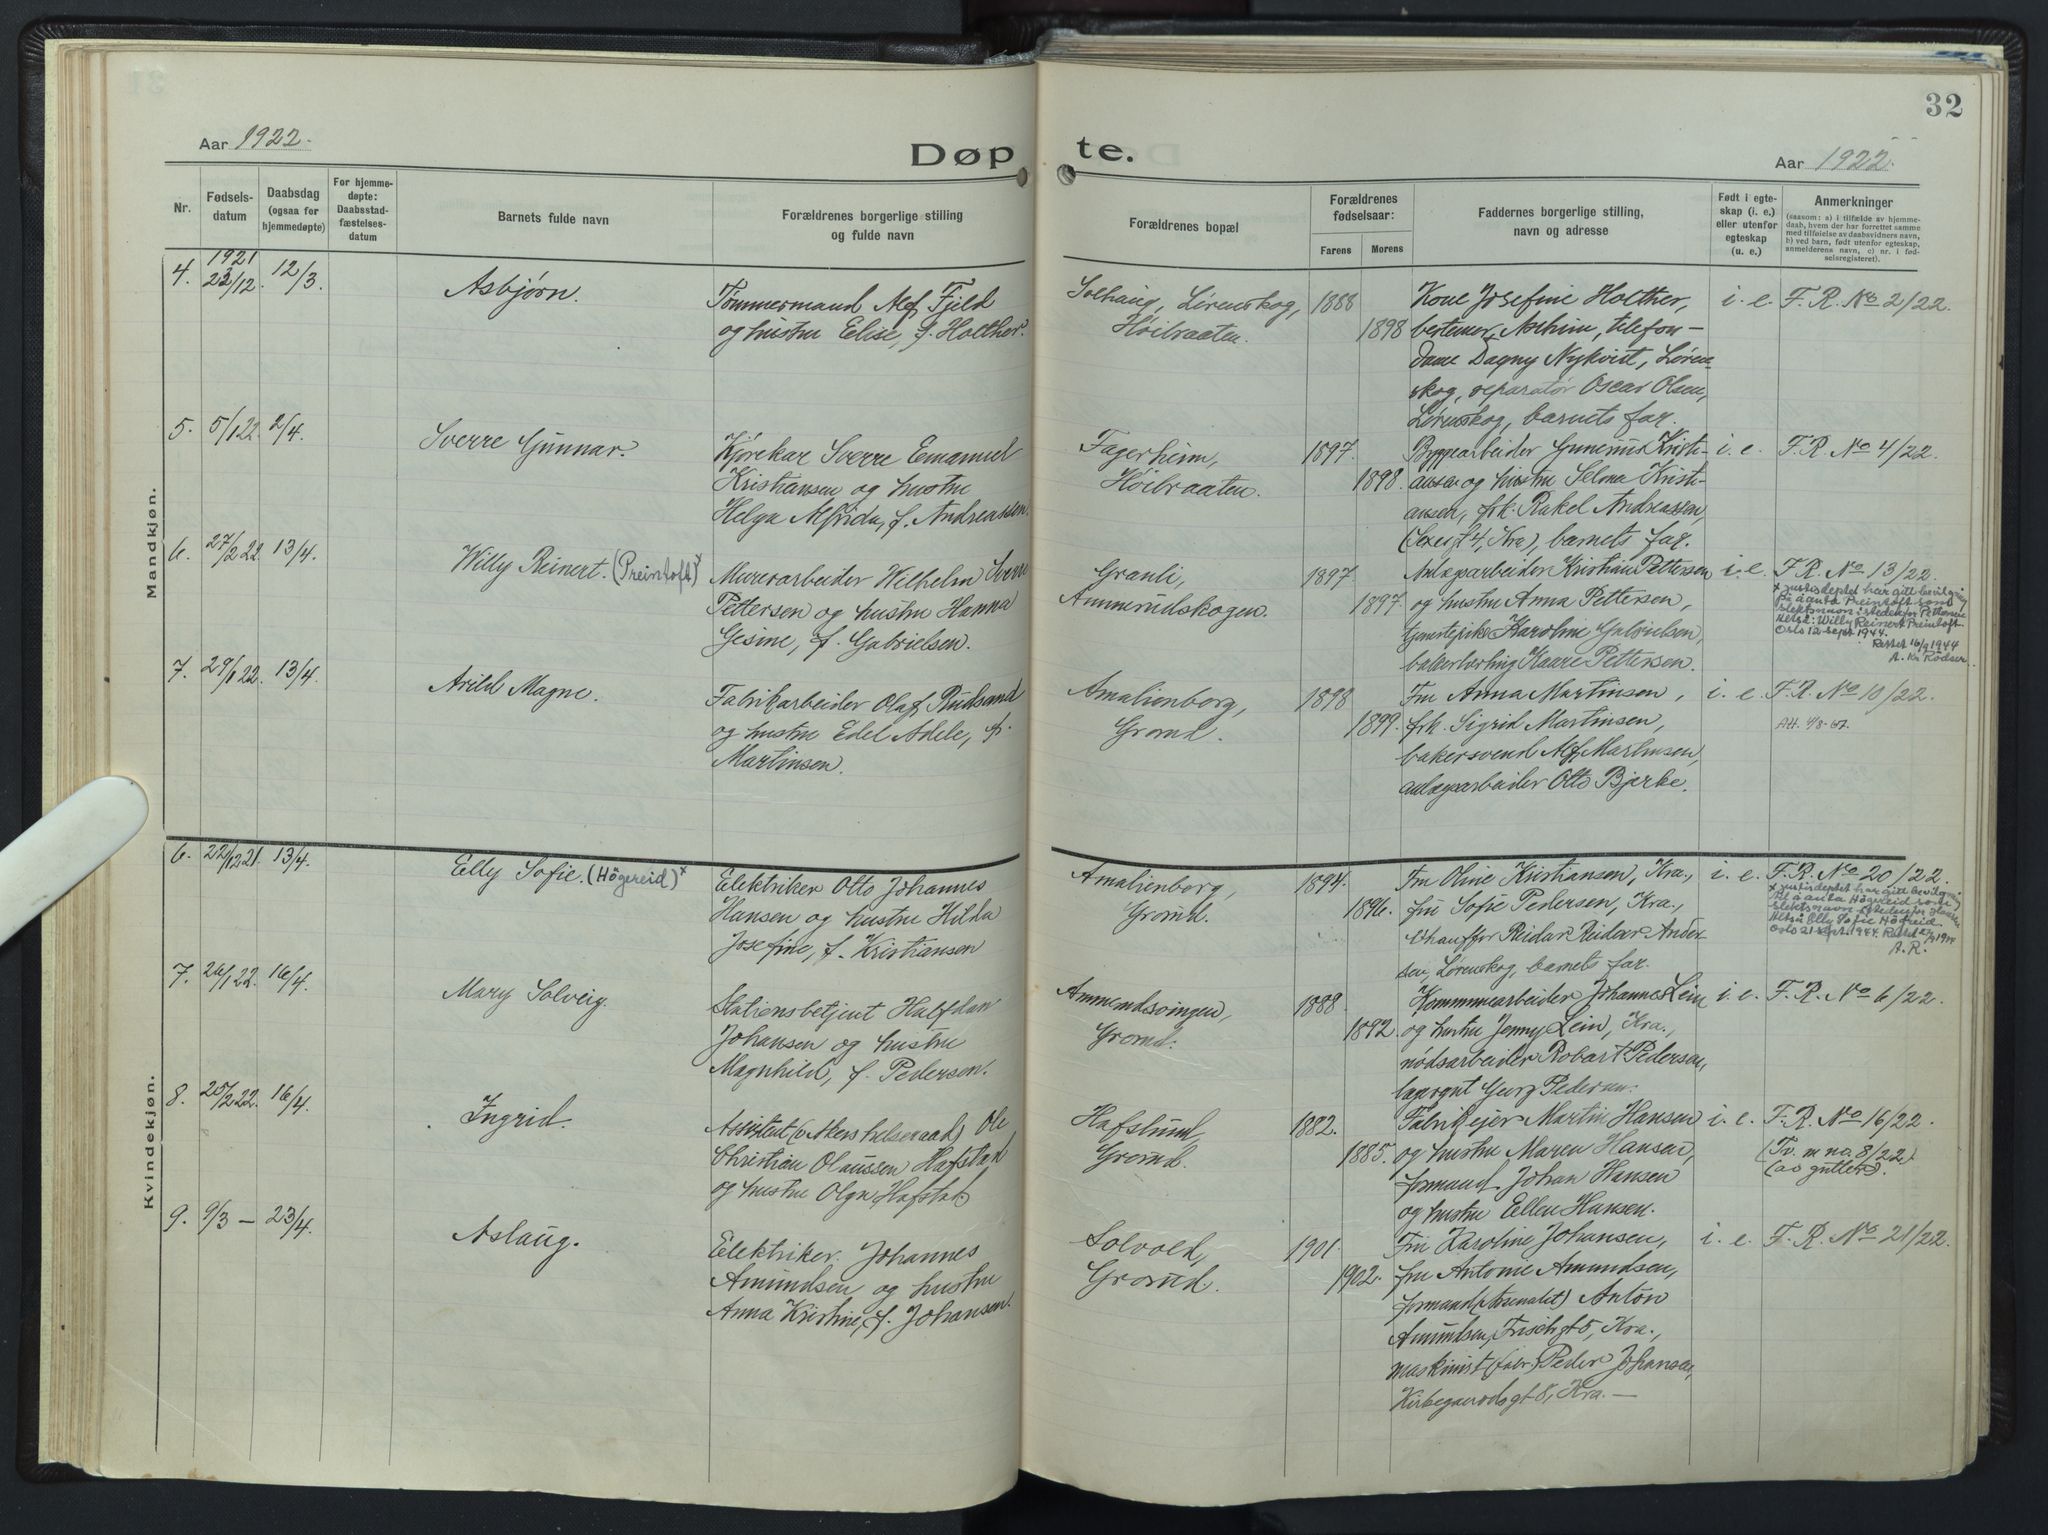 32
Aar 1922.
Døpte.
Aar 1922.
Nr.
Fødsels-
datum
Daabsdag
(ogsaa for
hjemmedøpte)
For hjemme-
døpte:
Daabsstad-
fæstelses-
datum
Barnets fulde navn
Forældrenes borgerlige stilling
og fulde navn
Forældrenes bopæl
Forældrenes
fødselsaar:
Farens
Morens
Faddernes borgerlige stilling,
navn og adresse
Født i egte-
skap (i. e.)
eller utenfor
egteskap
(u. e.)
Anmerkninger
(saasom: a) i tilfælde av hjemme-
daab, hvem der har forrettet samme
med tilføielse av daabsvidners navn,
b) ved barn, født utenfor egteskap,
anmelderens navn, c) nr. i fød-
selsregisteret).
Mandkjøn.
4.
1921
23/12.
12/3.
Asbjørn.
Tømmermand Alf Fjeld
og hustru Elise, f. Holther.
Solhaug, Lørenskog,
Høibraaten.
1888
1898
Kone Josefine Holther,
bestemor, Askim, telefon-
dame Dagny Nykvist, Løren-
skog, reparatør Oscar Olsen,
Lørenskog, barnets far.
i. e.
F. R. No 2/22.
5.
5/1 22.
2/4.
Sverre Gunnar.
Kjørekar Sverre Emanuel
Kristiansen og hustru
Helga Alfrida, f. Andreassen.
Fagerheim,
Høibraaten.
1897.
1898.
Byggearbeider Gunerius Kristi-
ansen og hustru Selma Kristi-
ansen, frk. Rakel Andreassen,
4, Kra), barnets far.
i. e.
F. R. No 4/22.
6.
27/2 22.
13/4.
Willy Reinert. (Preintoft)x
Murerarbeider Wilhelm Sverre
Pettersen og hustru Hanna
Gesine, f. Gabrielsen.
Granli,
Ammerudskogen.
1897.
1897.
Anlægsarbeider Kristian Pettersen
og hustru Anna Pettersen,
tjenestepike Karoline Gabrielsen,
bakerlærling Kaare Pettersen.
i. e.
F. R. No 13/22.
x Justisdeptet har gitt bevilgning
på å anta Preintoft som
slektsnavn istedenfor Pettersen
Altså: Willy Reinert Preintoft.
Oslo 12 sept. 1944.
Rettet 16/9 1944
A. Kr Rødser.
7.
29/1 22.
13/4.
Arild Magne.
Fabrikarbeider Olaf Rudsand
og hustru Edel Adele, f.
Martinsen.
Amalienborg,
Grorud.
1898
1899.
Fru Anna Martinsen,
frk. Sigrid Martinsen,
bakersvend Alf Martinsen,
anlægsarbeider Otto Bjerke.
i. e.
F. R. No 10/22.
Att. 4/8-67.
Kvindekjøn.
6.
22/12 21.
13/4.
Elly Sofie. (Högereid)x
Elektriker Otto Johannes
Hansen og hustru Hilda
Josefine, f. Kristiansen
Amalienborg,
Grorud.
1894.
1896.
Fru Oline Kristiansen, Kra.,
fru Sofie Pedersen, Kra.,
chauffør Reidar Reidar Ander-
sen, Lørenskog, barnets far.
i. e.
F. R. No 20/22.
x Justisdeptet har gitt bevilgning
til å anta Högereid som
slektsnavn istedenfor Hansen
Altså Elly Sofie Högreid.
Oslo 21 sept. 1944. Rettet 27/9 1944
A. R.
7.
26/1 22.
16/4.
Mary Solveig.
Stationsbetjent Halfdan
Johansen og hustru
Magnhild, f. Pedersen.
Ammerudsvingen,
Grorud.
1888.
1892.
Kommunearbeider Johannes Lein
og hustru Jenny Lein, Kra.,
nødsarbeider Robart Pedersen,
Georg Pedersen.
i. e.
F. R. No 6/22.
8.
25/2 22.
16/4.
Ingrid.
Assistent (v Akers helseraad) Ole
Christian Olaussen Hafstad
og hustru Olga Hafstad
Hafslund,
Grorud.
1882.
1885.
Fabrikeier Martin Hansen
og hustru Maren Hansen,
formand Johan Hansen
og hustru Ellen Hansen.
i. e.
F. R. No 16/22.
(Tv. m no 8/22)
(av gutter).
9.
9/3 —
23/4.
Aslaug.
Elektriker Johannes
Amundsen og hustru
Anna Kristine, f. Johansen.
Solvold,
Grorud.
1901.
1902.
Fru Karoline Johansen,
fru Antonie Amundsen,
formand (Arsenalet) Anton
Amundsen, Frischsgt 5, Kra.,
maskinist (fabr) Peder Johansen,
gt 8, Kra. —
i. e.
F. R. No 21/22.